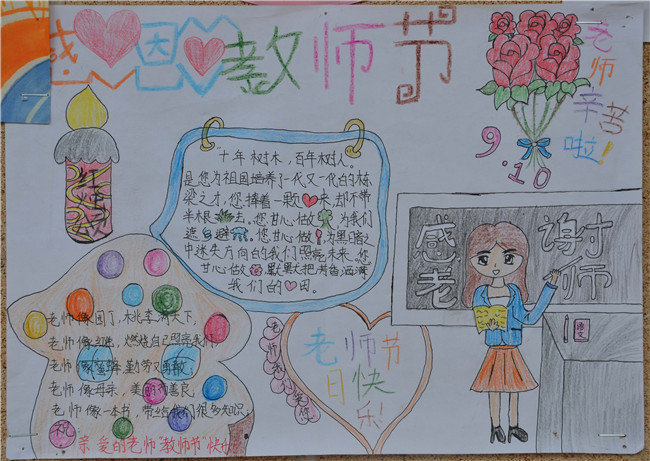 感恩教师节
老师辛苦啦!
9.10
红烛
十年树木，百年树人。
是您为祖国培养了一代又一代的栋
梁之才，您捧着一颗来，却不带
半根去。您甘心做为我们
遮避。您甘心做，为黑暗之
中迷失方向的我们照亮未来。您
甘心做默默地把
我们的田。
感谢
老师
语文
老师节
日快乐
老师像园丁，桃李满天下。
老师像，燃烧自己照亮我们
老师像，勤劳又勇敢
老师像母亲，美丽而善良
老师像一本书，带给我们很多知识。
祝
亲爱的老师"教师节"快乐